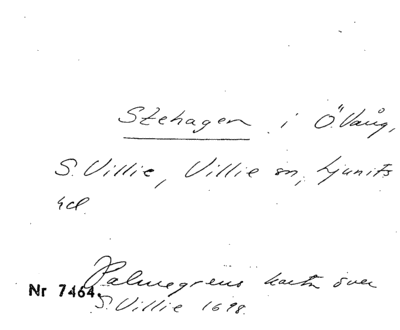 Stehagen i Ö. Vång,
S. Villie, Villie sn, Ljunits
hd.
Palmegrens karta över
Nr 7464.
S. Villie 1698.